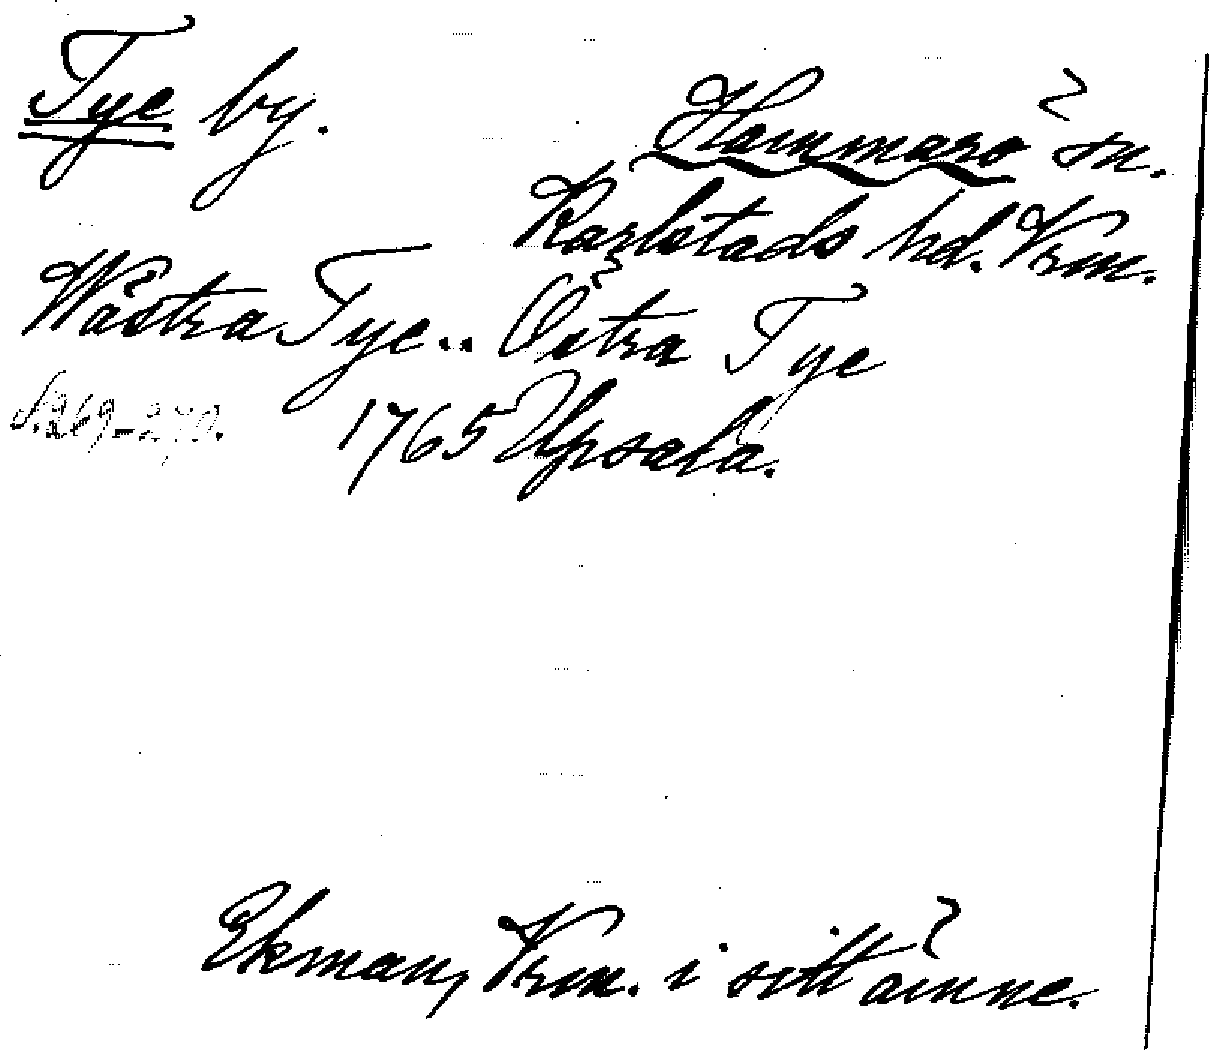 Tye by.
Hammarö sn.
Karlstads hd. Vrm.
Wästra Tye.. Östra Tye
S. 269-270.
1765 Upsala.
Ekman, Vrm. i sitt ämne.